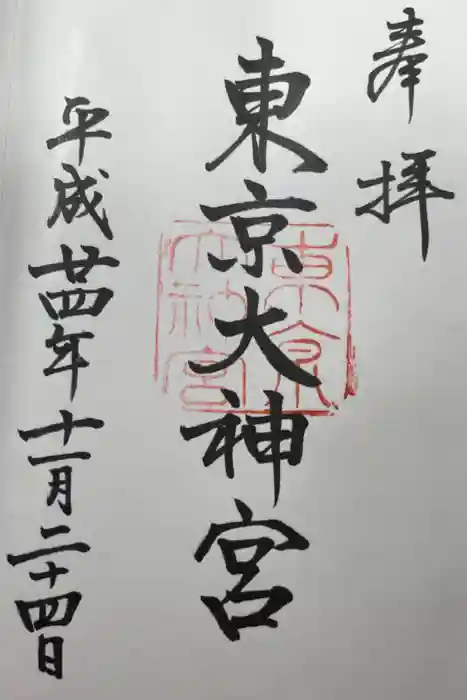 奉拝
東京大神宮
東京
大神宮
平成廿四年十一月二十四日